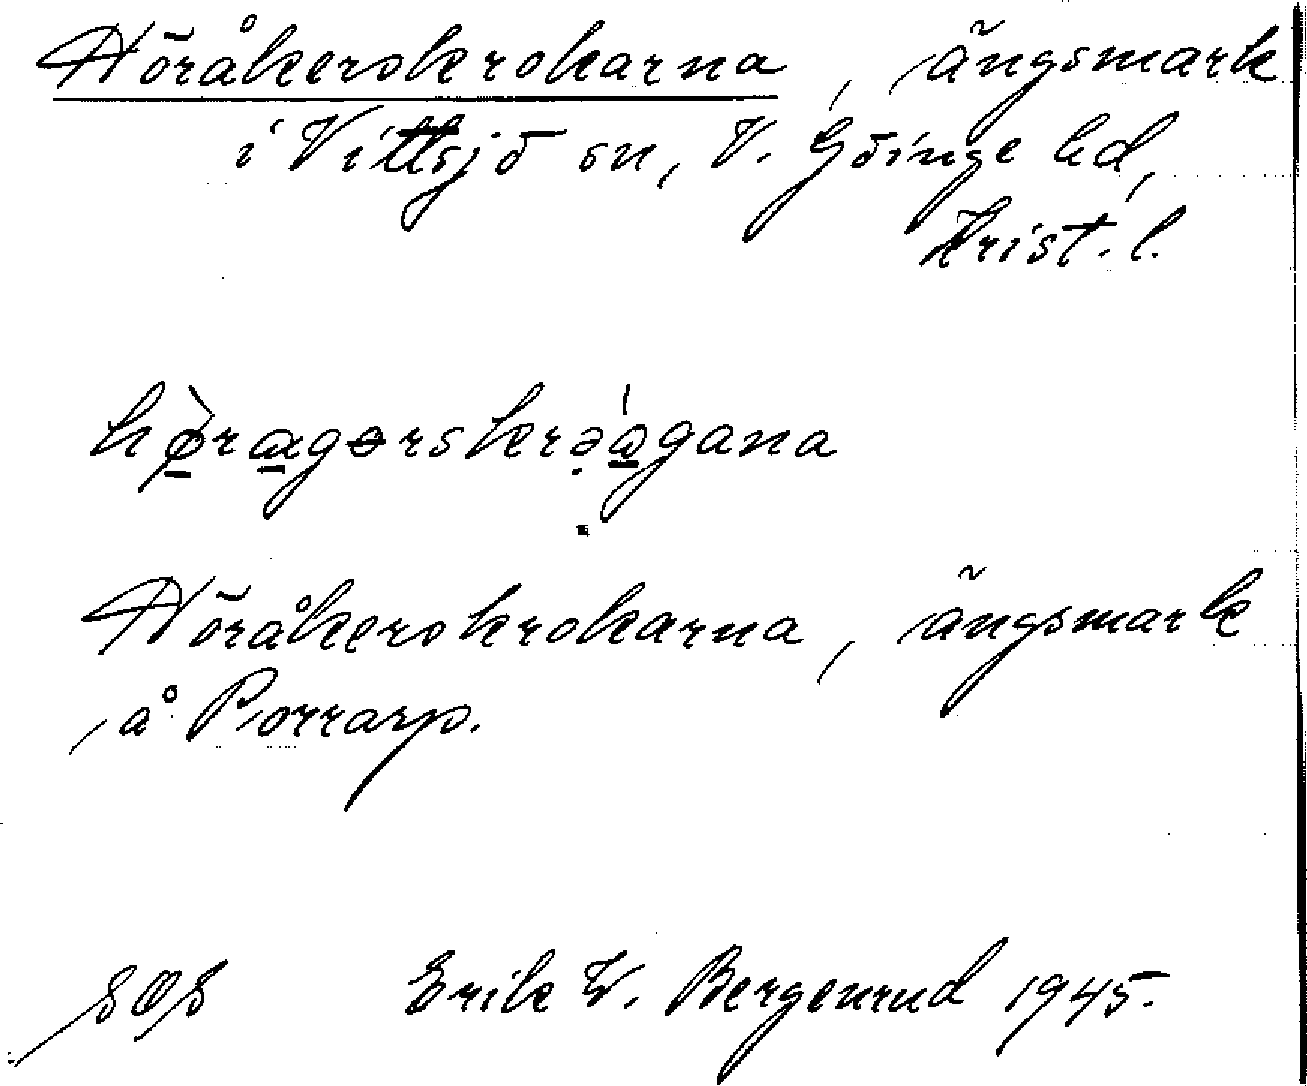 Höråkerskrokarna, ängsmark
i Vittsjö sn, V. Göinge hd,
Krist. l.
hø̀ragərskrəágana
Höråkerskrokarna, ängsmark
å Porrarp.
SOS Erik W. Bergenrud 1945.